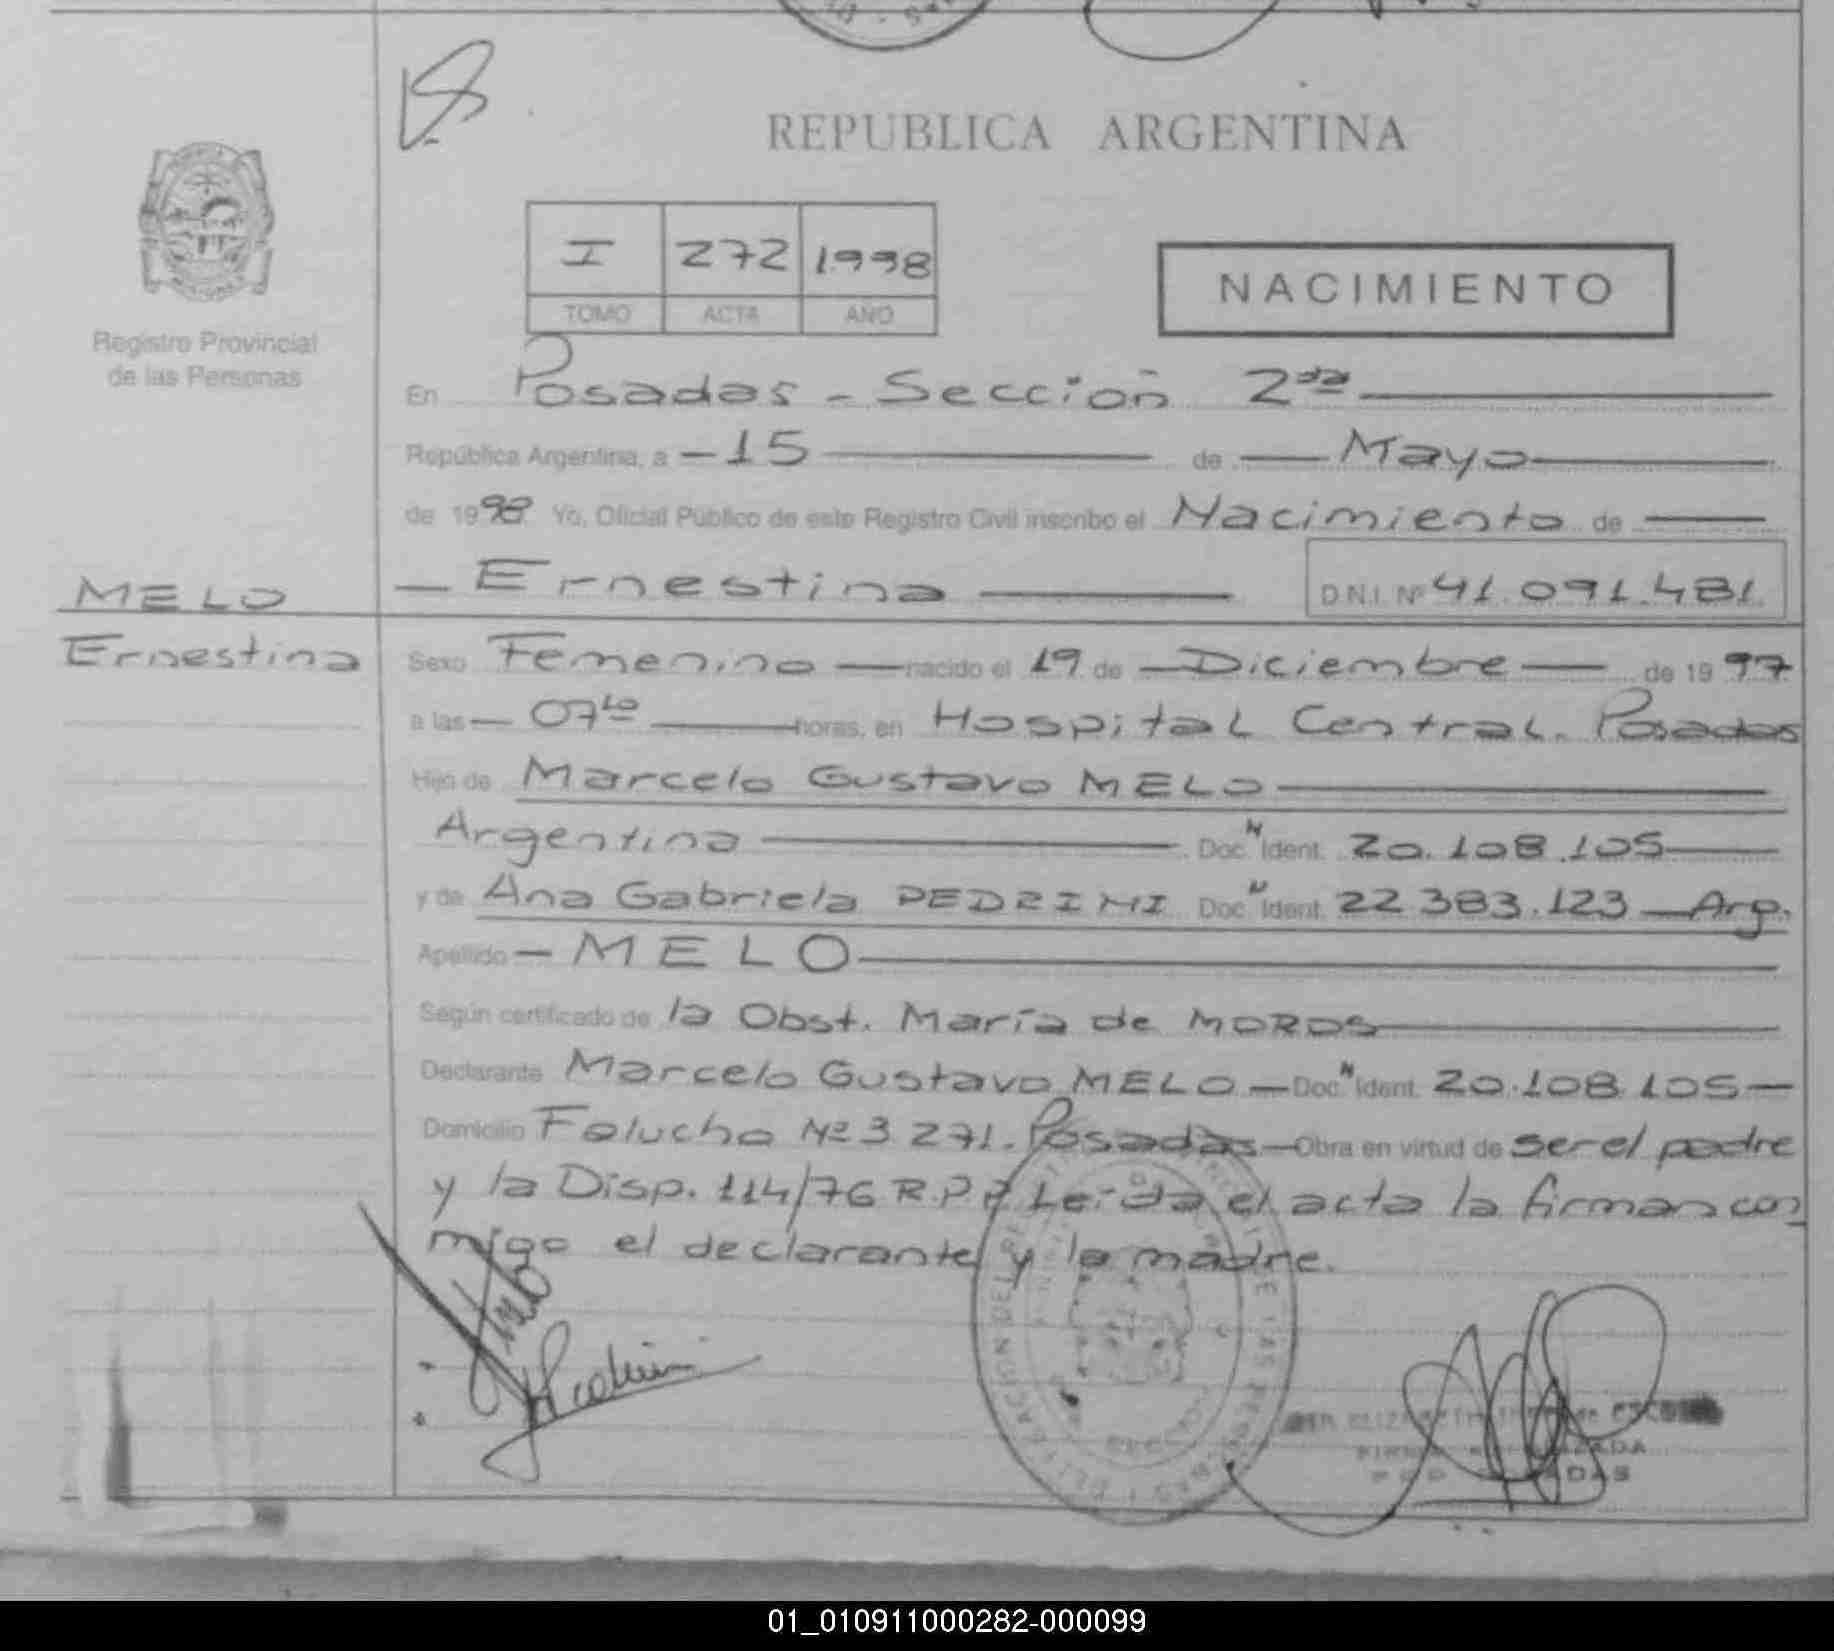 REPUBLICA ARGENTINA
I 272 1998
TOMO ACTA AÑO
NACIMIENTO
Registro Provincial
de las Personas
En Posadas - Sección 2da
República Argentina, a - 15 de Mayo
de 1998 Yo, Oficial Público de este Registro Civil inscribo el Nacimiento de
- Ernestina D.N.I. Nº 41.091.481.
MELO
Ernestina
Sexo Femenino nacido el 19 de Diciembre de 1997
a las 07 horas, en Hospital Central. Posadas
Hijo de Marcelo Gustavo MELO
Argentina Doc. N Ident. 20.108.105
y de Ana Gabriela PEDRINI Doc. N Ident. 22.383.123 - Arg.
Apellido - MELO
Según certificado de la Obst. María de MOROS
Declarante Marcelo Gustavo MELO - Doc. N Ident. 20.108.105 -
Domicilio Falucho Nº 3271. Posadas - Obra en virtud de ser el padre
y la Disp. 114/76 R.P.P. Leída el acta la firman con
migo el declarante y la madre.
01_010911000282-000099